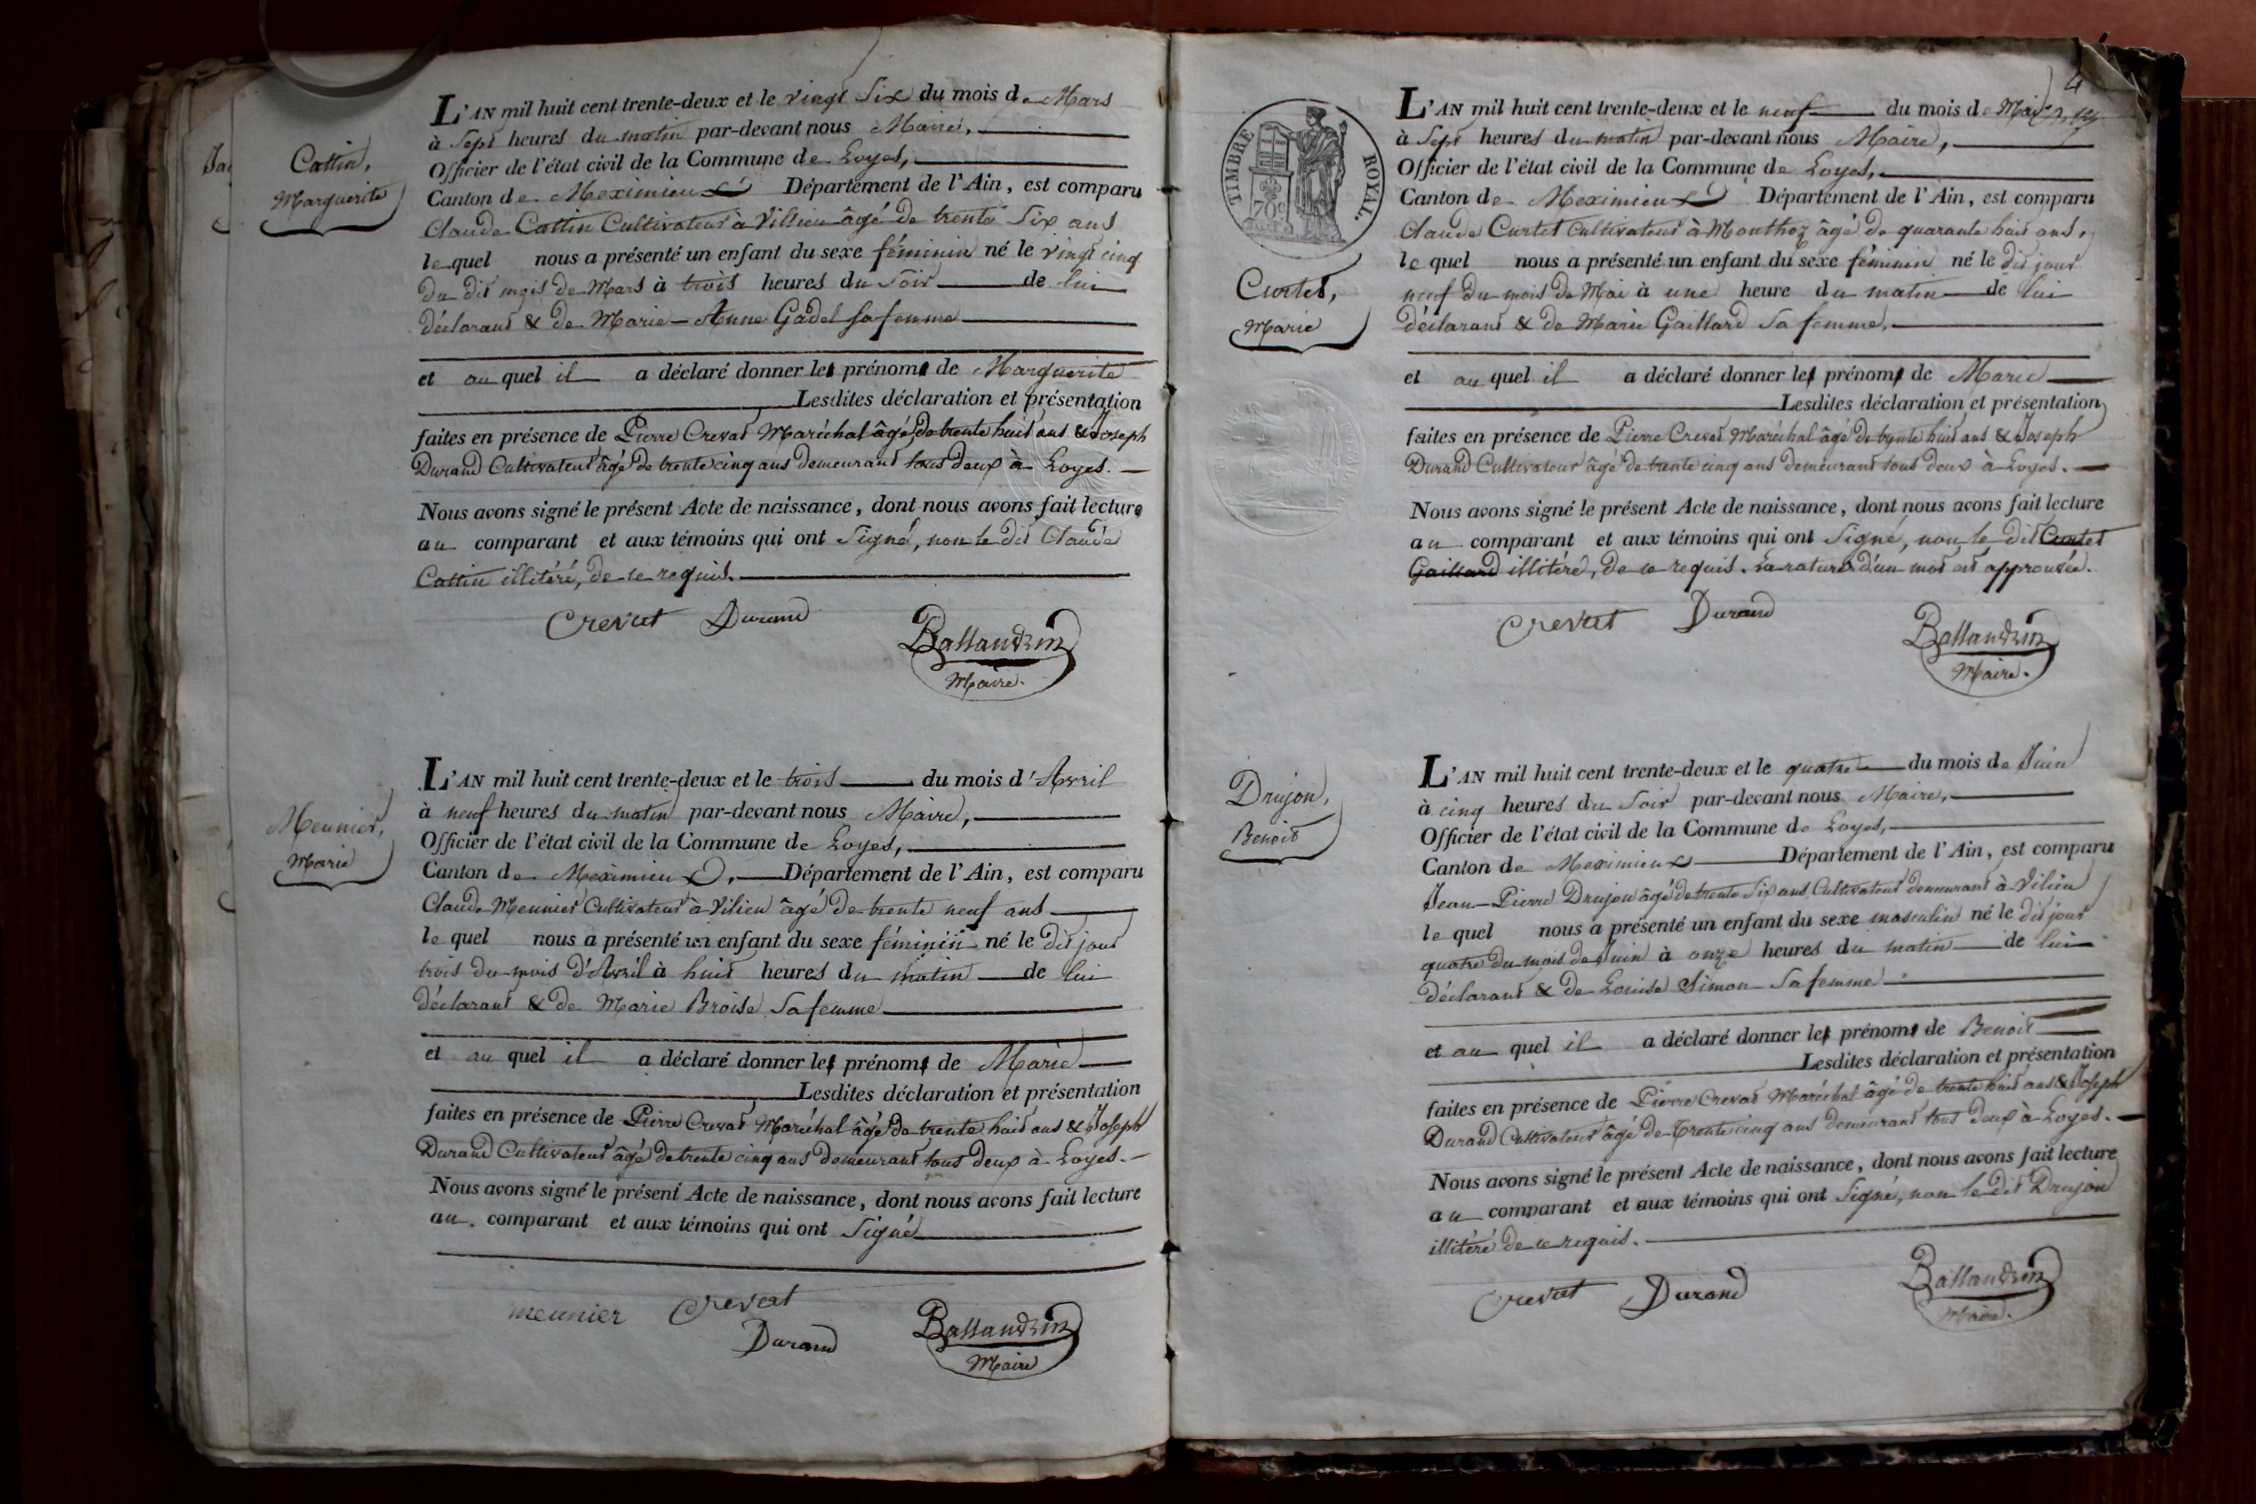 Cattin,
Marguerite
L'AN mil huit cent trente-deux et le vingt Six du mois de Mars
à Sept heures du matin par-devant nous Maire,
Officier de l'état civil de la Commune de Loyes,
Canton de Meximieux Département de l'Ain, est comparu
Claude Cattin Cultivateur à Villieu âgé de trente Six ans
lequel nous a présenté un enfant du sexe féminin né le vingt cinq
du dit mois de Mars à trois heures du Soir de lui
déclarant & de Marie-Anne Gadel sa femme
et au quel il a déclaré donner les prénoms de Marguerite
Lesdites déclaration et présentation
faites en présence de Pierre Crevat Maréchal âgé de trente huit ans & Joseph
Durand Cultivateur âgé de trente cinq ans demeurant tous deux à Loyes.
Nous avons signé le présent Acte de naissance, dont nous avons fait lecture
au comparant et aux témoins qui ont Signé, non le dit Claude
Cattin illitéré, de ce requis.
Crevat Durand
Ballandrin
Maire.
Meunier,
Marie
L'AN mil huit cent trente-deux et le trois du mois d'Avril
à neuf heures du matin par-devant nous Maire,
Officier de l'état civil de la Commune de Loyes,
Canton de Meximieux, Département de l'Ain, est comparu
Claude Meunier Cultivateur à Vilieu âgé de trente neuf ans
lequel nous a présenté un enfant du sexe féminin né le dit jour
trois du mois d'Avril à huit heures du matin de lui
déclarant & de Marie Broise sa femme
et au quel il a déclaré donner les prénoms de Marie
Lesdites déclaration et présentation
faites en présence de Pierre Crevat Maréchal âgé de trente huit ans & Joseph
Durand Cultivateur âgé de trente cinq ans demeurant tous deux à Loyes.
Nous avons signé le présent Acte de naissance, dont nous avons fait lecture
au comparant et aux témoins qui ont Signé
meunier Crevat
Durand
Ballandrin
Maire
4
TIMBRE ROYAL.
70c
Curtet,
Marie
L'AN mil huit cent trente-deux et le neuf du mois de Mai
à Sept heures du matin par-devant nous Maire,
Officier de l'état civil de la Commune de Loyes,
Canton de Meximieux Département de l'Ain, est comparu
Claude Curtet Cultivateur à Monthoz âgé de quarante huit ans,
lequel nous a présenté un enfant du sexe féminin né le dit jour
neuf du mois de Mai à une heure du matin de lui
déclarant & de Marie Gaillard sa femme,
et au quel il a déclaré donner les prénoms de Marie
Lesdites déclaration et présentation
faites en présence de Pierre Crevat Maréchal âgé de trente huit ans & Joseph
Durand Cultivateur âgé de trente cinq ans demeurant tous deux à Loyes.
Nous avons signé le présent Acte de naissance, dont nous avons fait lecture
au comparant et aux témoins qui ont Signé, non le dit Curtet
Gaillard illitéré, de ce requis. La rature d'un mot est approuvée.
Crevat Durand
Ballandrin
Maire.
Drujon,
Benoit
L'AN mil huit cent trente-deux et le quatre du mois de Juin
à cinq heures du Soir par-devant nous Maire,
Officier de l'état civil de la Commune de Loyes,
Canton de Meximieux Département de l'Ain, est comparu
Jean-Pierre Drujon âgé de trente Six ans Cultivateur demeurant à Vilieu
lequel nous a présenté un enfant du sexe masculin né le dit jour
quatre du mois de Juin à onze heures du matin de lui
déclarant & de Louise Simon sa femme
et au quel il a déclaré donner les prénoms de Benoit
Lesdites déclaration et présentation
faites en présence de Pierre Crevat Maréchal âgé de trente huit ans & Joseph
Durand Cultivateur âgé de trente cinq ans demeurant tous deux à Loyes.
Nous avons signé le présent Acte de naissance, dont nous avons fait lecture
au comparant et aux témoins qui ont Signé, non le dit Drujon
illitéré de ce requis.
Crevat Durand
Ballandrin
Maire.